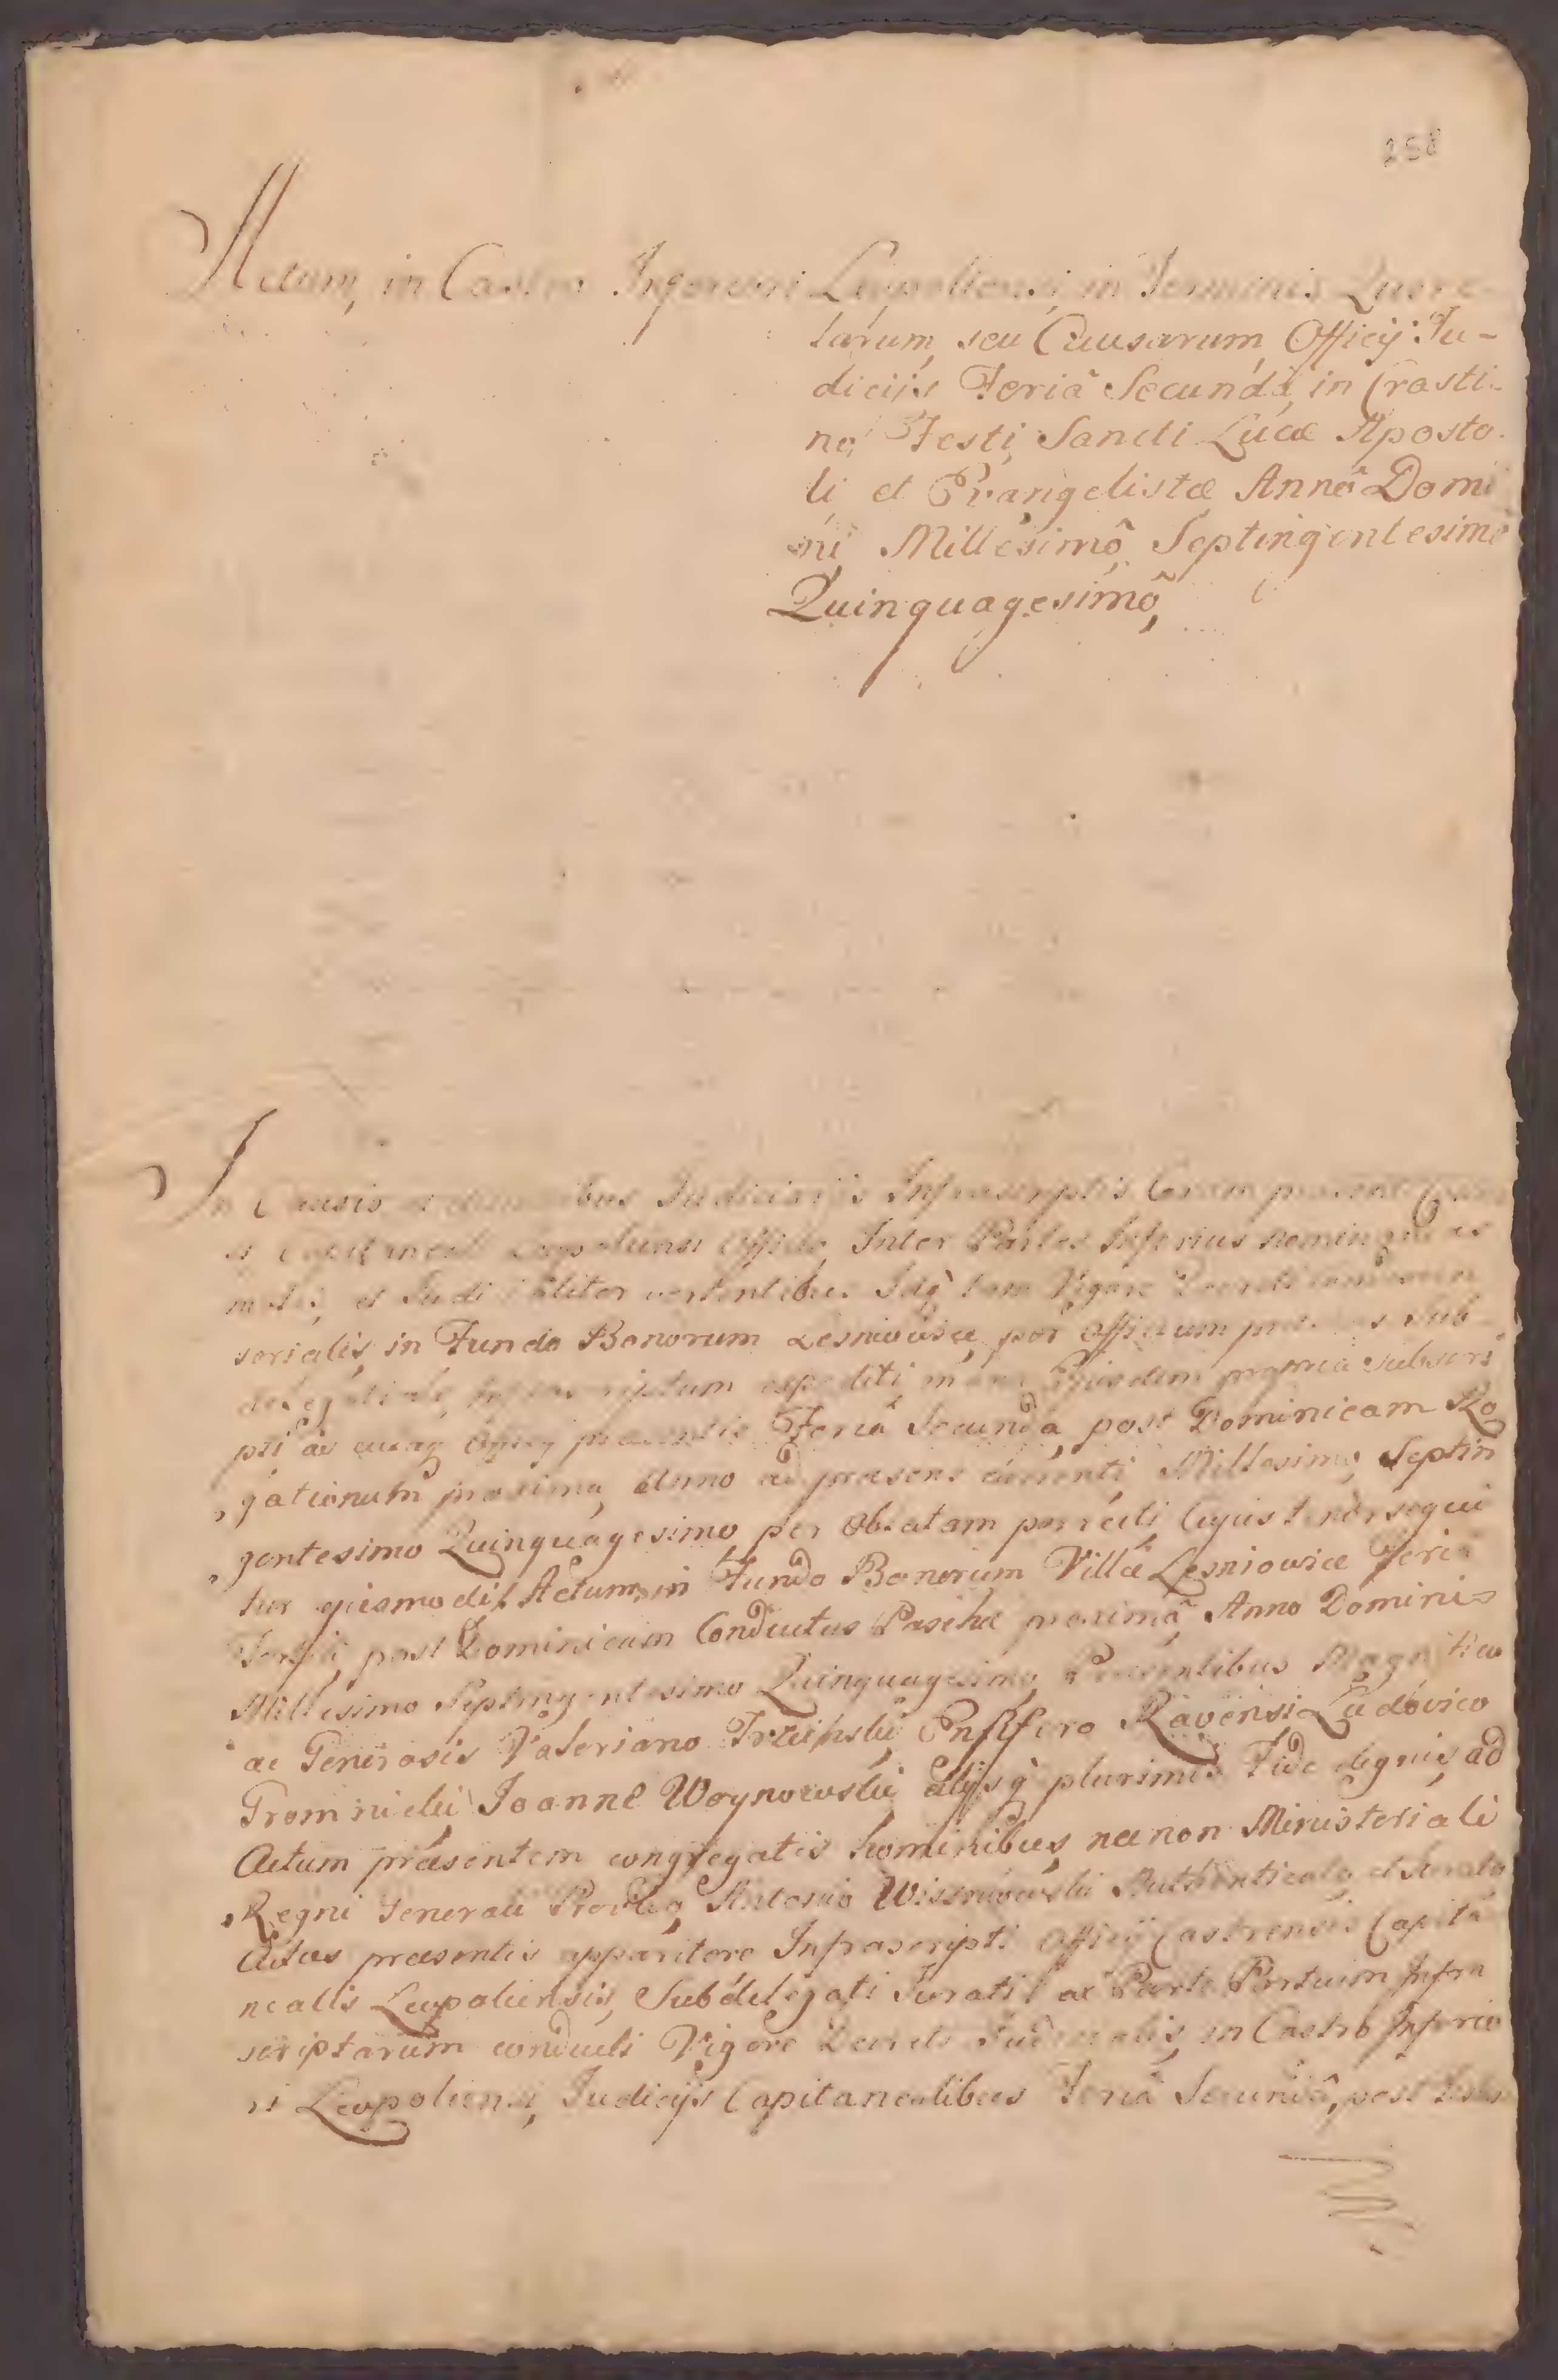 258
Actum, in Castro Inferiori Leopoliensi, in Terminis Quere-
larum, seu Causarum, Officij Ju-
dicijs Feriâ Secundâ, in Crasti-
no, Festi, Sancti Lucæ Aposto-
li, et Evangelistæ Annô Domi
ni, Millesimô, Septingentesimô
Quinquagesimô,
In Causis et Judiciarijs Infrascriptis Coram
et Capitaneali Leopoliensi Officio, Inter Partes Inferius nomin
motis, et Judicialiter vertentibus Vigore Decreti
serialis, in Fundo Bonorum Lesniovice, per Officium Sub
delegatiale, expediti, manu Ejusdem propria subscri
pti ac Feriâ Secundâ, post Dominicam Ro
gationum proxima, Anno ad præsens currenti, Millesimo, Septin
gentesimo Quinquagesimo, per Oblatam porrecti, Cujus tenor sequi
tur ejusmodi. Actum, in Fundo Bonorum Villæ Lesniovice Feria
Tertia, post Dominicam Conductus Paschæ proximâ, Anno Domini
Millesimo Septingentesimo Quinquagesimo, Præsentibus Magnifico
ac Generosis Valeriano Ensifero Ravensi Ludovico
Joanne Woynowski alijsq plurimis Fide dignis, ad
Actum præsentem congregatis hominibus, nec non Ministeriali
Regni Generali Provido Antonio Authenticato et Jurato
Actus præsentis apparitore Infrascripti Officij Castrensis Capita
nealis Leopoliensis, Subdelegati Jurati ac Parte Partium Infra
scriptarum conducti Vigore Decreti Judicialis, in Castro Inferio
ri Leopoliensi, Judicijs Capitanealibus Feriâ Secundâ, post